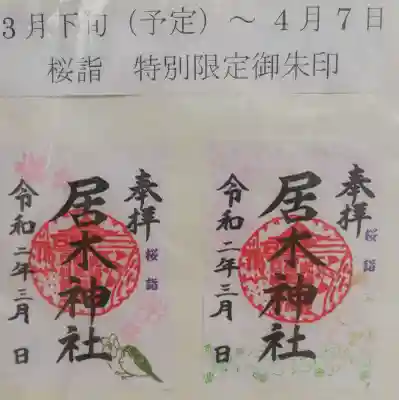 3月下旬（予定）～４月７日
桜詣　特別限定御朱印
奉拝
桜詣
居木神社
令和二年三月　日
奉拝
桜詣
居木神社
令和二年三月　日